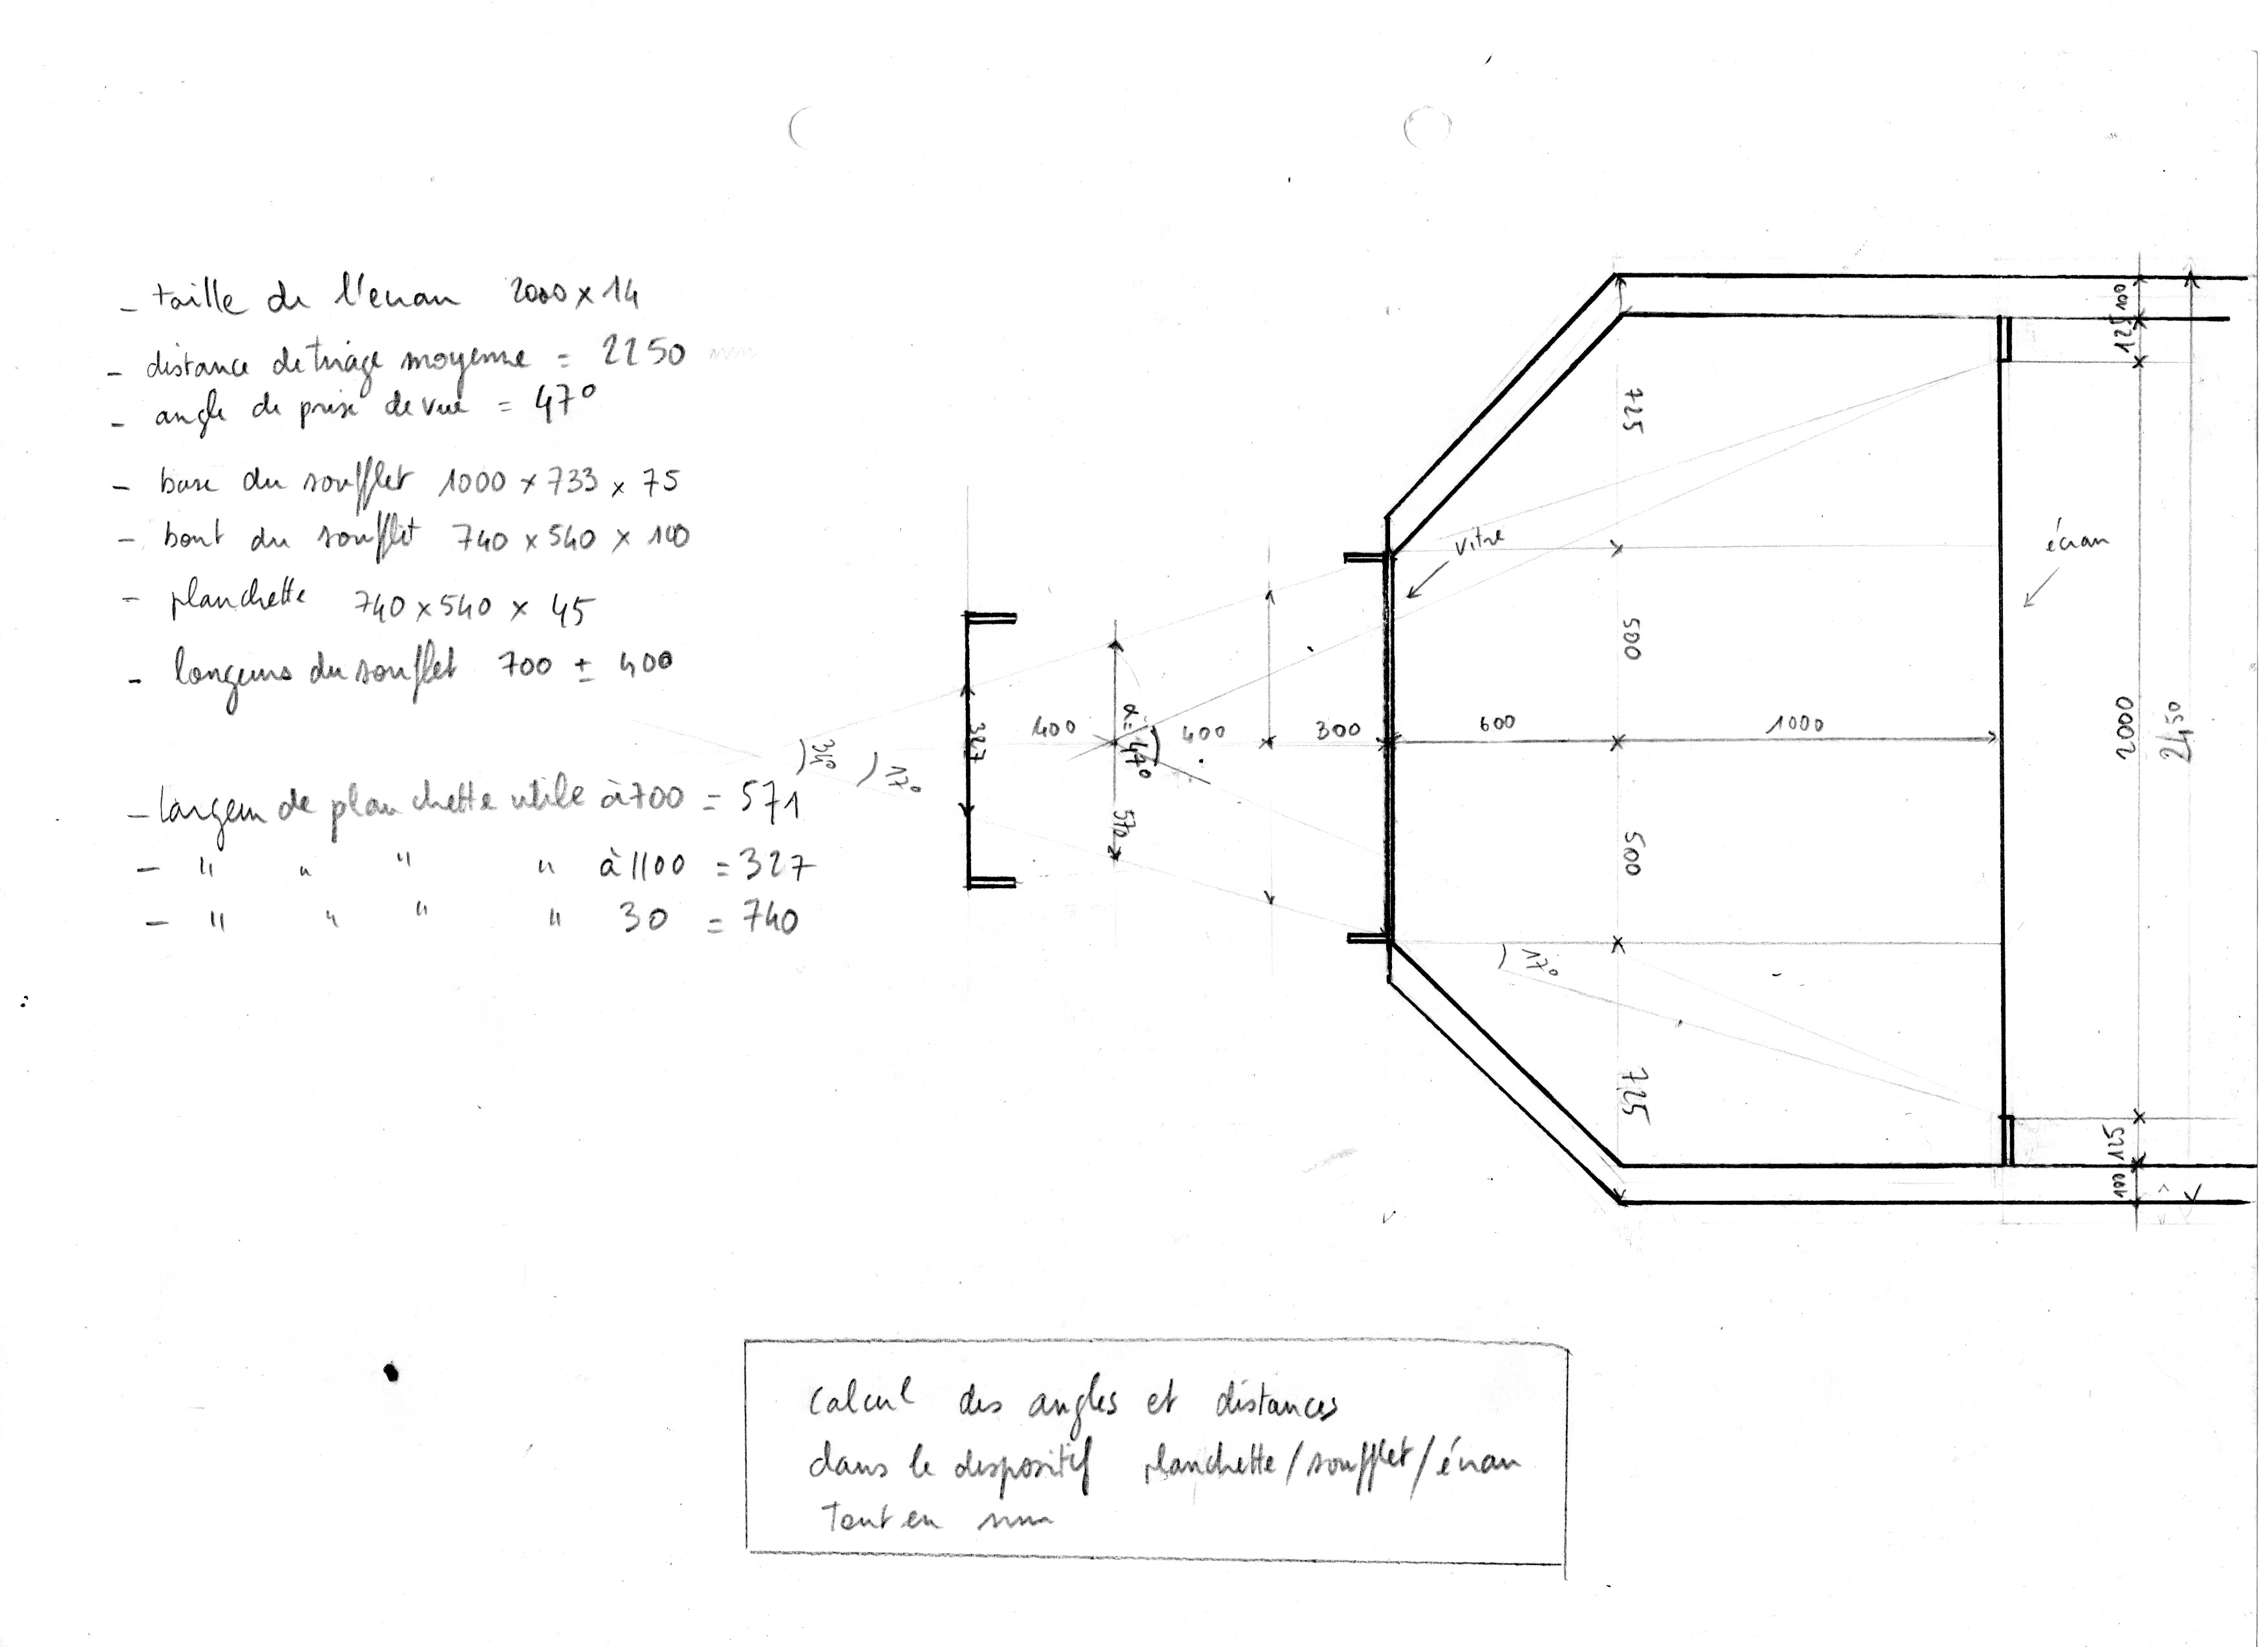 - taille de l'écran 2000 x 14
- distance de tirage moyenne = 2250 mm
- angle de prise de vue = 47°
- base du soufflet 1000 x 733 x 75
- bout du soufflet 740 x 540 x 100
- planchette 740 x 540 x 45
- longeurs du soufflet 700 ± 400
- largeur de planchette utile à 700 = 571
- " " " " à 1100 = 327
- " " " " 30 = 740
100
125
725
vitre
écran
500
2000
2450
327
400
α = 47°
400
300
600
1000
34°
17°
571
500
17°
725
125
100
Calcul des angles et distances
dans le dispositif planchette/soufflet/écran
Tout en mm